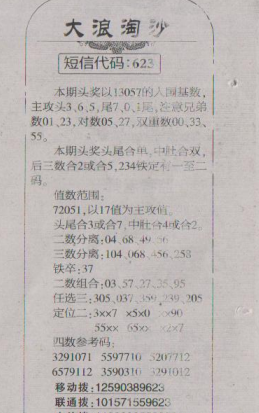 大浪淘沙
短信代码:623
本期头奖以13057的入围基数,
主攻头3、6、5,尾7、0、1尾,注意兄弟
数01、23,对数05、27,双重数00、33、
55。
本期头奖头尾合单,中肚合双,
后三数合2或合5,234铁定有一至二
码。
值数范围:
72051,以17值为主攻值。
头尾合3或合7,中肚合4或合2。
二数分离:04、68、49、56
三数分离:104、068、456、258
铁卒:37
二数组合:03、57、27、35、95
任选三:305、037、359、239、205
定位二:3××7 ×5×0 ××90
55×× 65×× ×2×7
四数参考码:
3291071 5597710 5207712
6579112 3590310 3291012
移动拨:12590389623
联通拨:101571559623